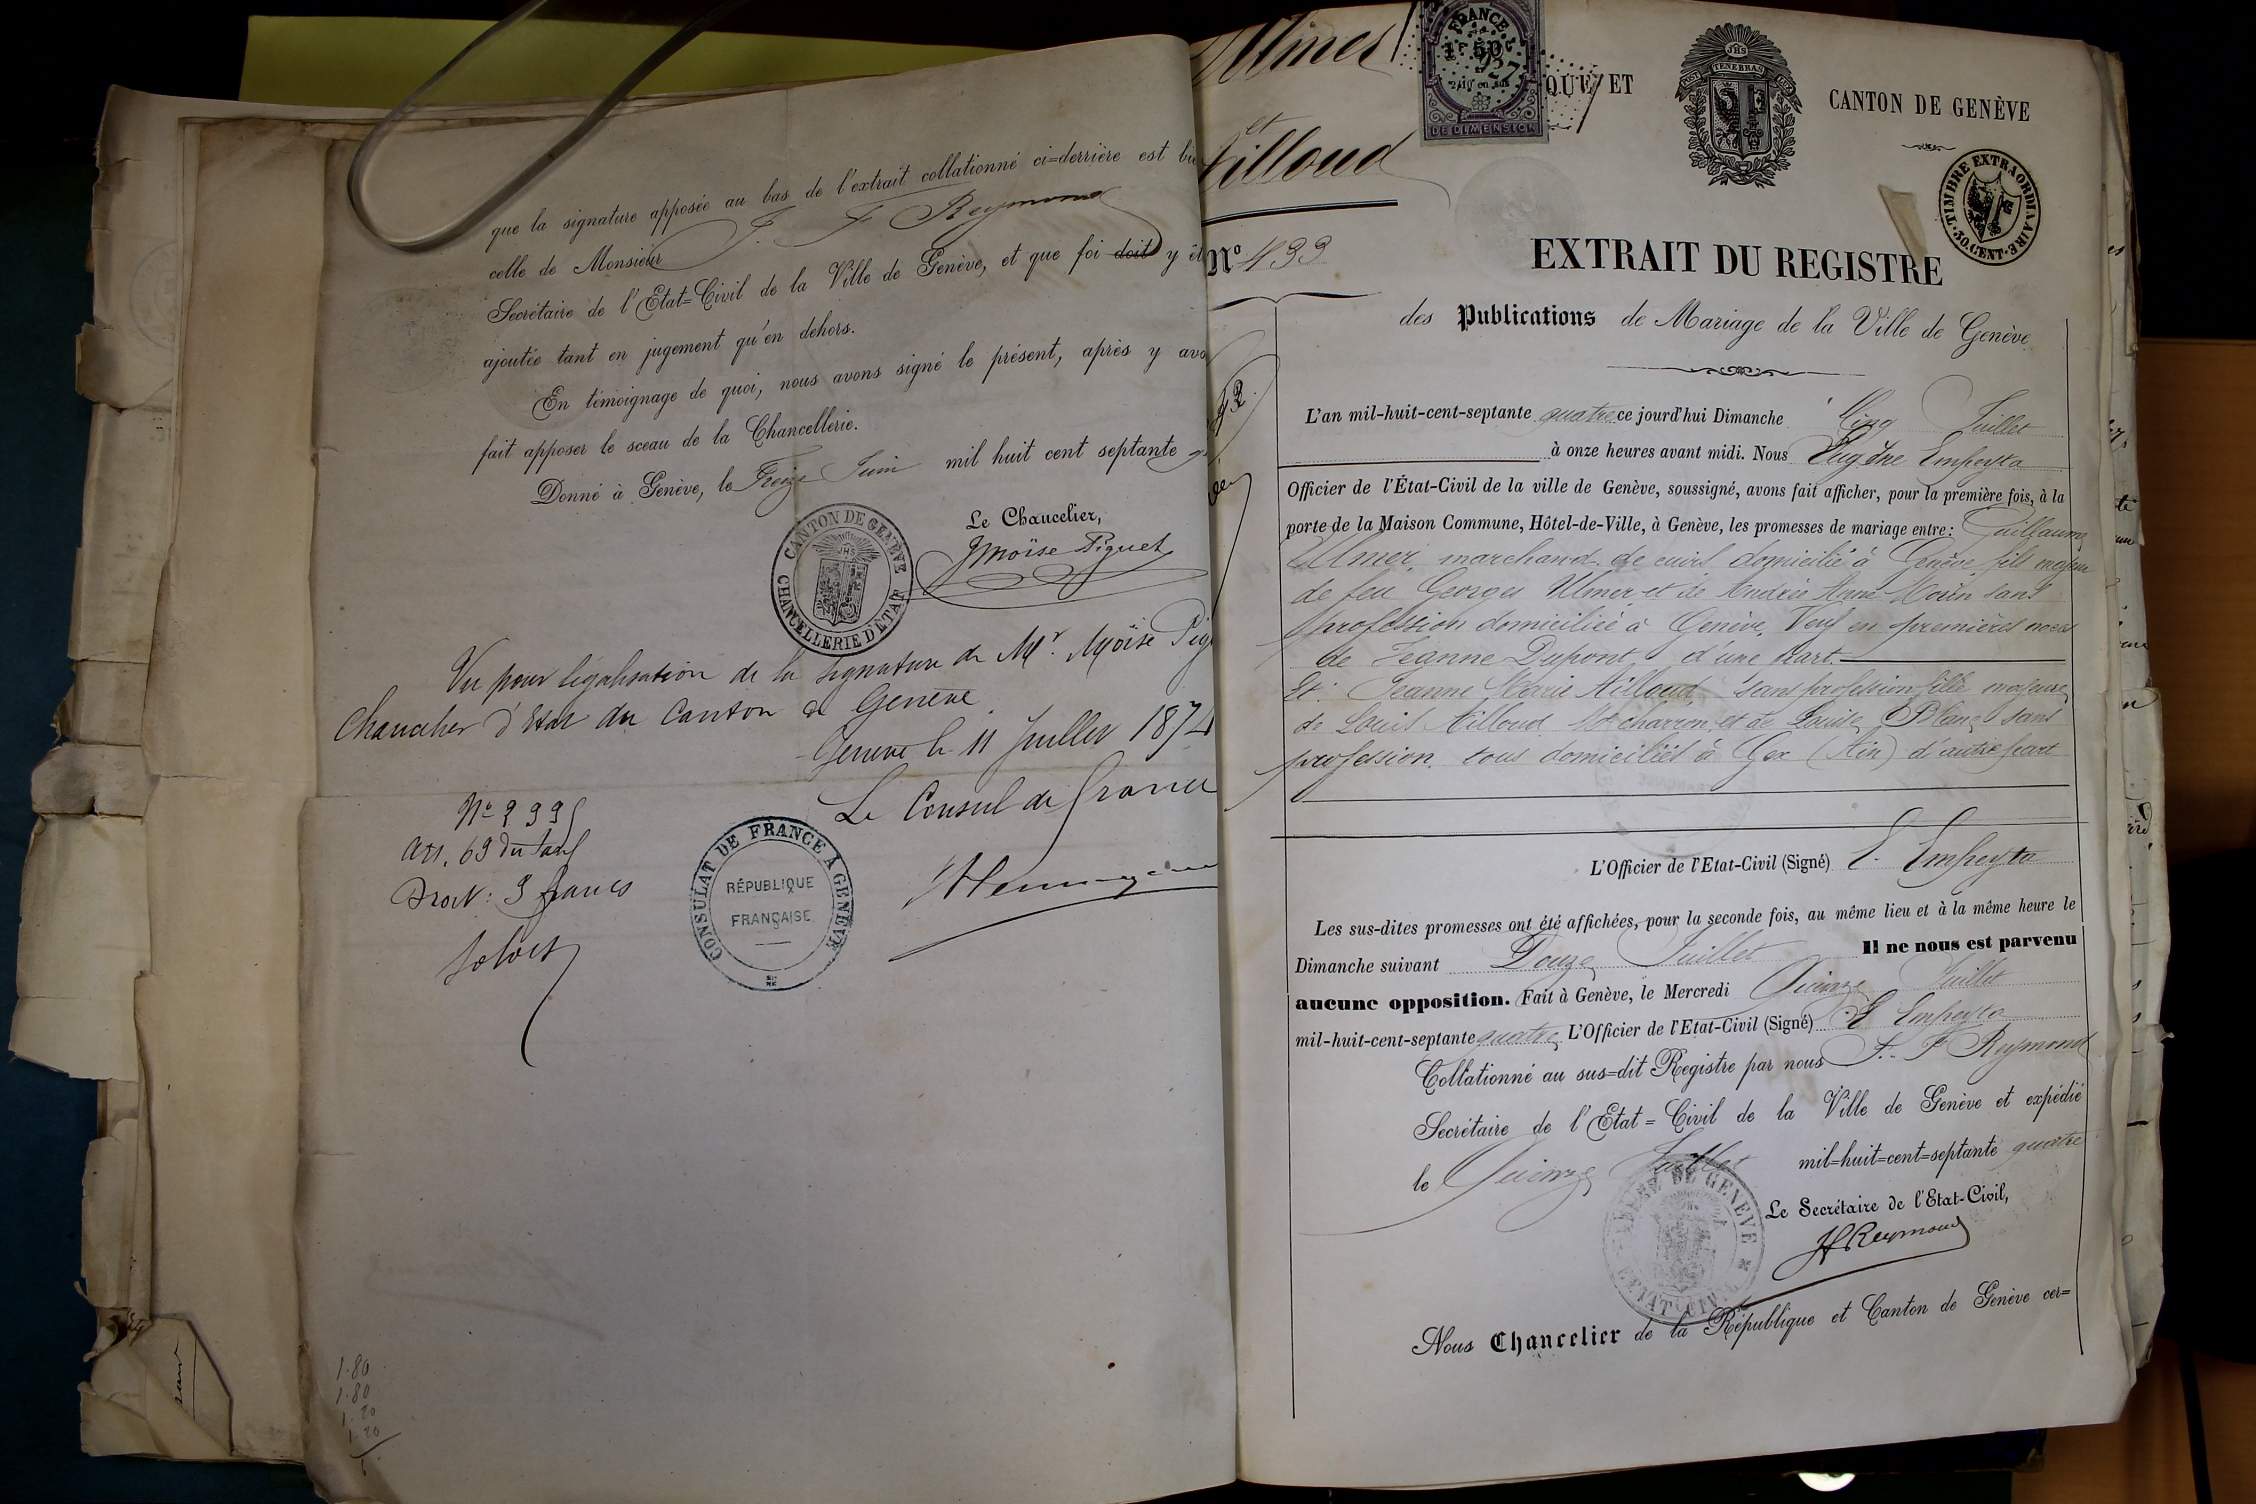 que la signature apposée au bas de l'extrait collationné ci=derrière est
celle de Monsieur J. F Reymond
Secrétaire de l'Etat=Civil de la Ville de Genève, et que foi doit y
ajoutée tant en jugement qu'en dehors.
En témoignage de quoi, nous avons signé le présent, après y
fait apposer le sceau de la Chancellerie.
Donné à Genève, le Treize Juin mil huit cent septante
Le Chancelier,
Moïse Piguet
CANTON DE GENÈVE
CHANCELLERIE D'ÉTAT
JHS
Vu pour légalisation de la signature de Mr. Moïse
Chancelier d'Etat du Canton de Genève.
Genève le 11 Juillet 1874
Le Consul de France
CONSULAT DE FRANCE A GENÈVE
RÉPUBLIQUE
FRANÇAISE
Art. 69 du tarif
Droit: 3 francs
1.80
1.80
1.20
1.20
Ulmer
et
Tilloud
No 433
FRANCE
1F 50c
DE DIMENSION
QUE ET
POST TENEBRAS LUX
JHS
CANTON DE GENÈVE
TIMBRE EXTRAORDINAIRE
30.CENT.
EXTRAIT DU REGISTRE
des Publications de Mariage de la Ville de Genève
L'an mil-huit-cent-septante quatre ce jourd'hui Dimanche Cinq Juillet
à onze heures avant midi. Nous Eugène Empeyta
Officier de l'État-Civil de la ville de Genève, soussigné, avons fait afficher, pour la première fois, à la
porte de la Maison Commune, Hôtel-de-Ville, à Genève, les promesses de mariage entre: Guillaume
Ulmer, marchand de cuirs domicilié à Genève, fils majeur
de feu Georges Ulmer et de sans
profession domiciliée à Genève, Veuf en premières noces
de Jeanne Dupont, d'une part.
Et: Jeanne Marie Tilloud, sans profession, fille majeure
de Louis Tilloud charron, et de Louise Blanc sans
profession, tous domiciliés à Gex (Ain) d'autre part
L'Officier de l'Etat-Civil (Signé) E. Empeyta
Les sus-dites promesses ont été affichées, pour la seconde fois, au même lieu et à la même heure le
Dimanche suivant Douze Juillet Il ne nous est parvenu
aucune opposition. Fait à Genève, le Mercredi Quinze Juillet
mil-huit-cent-septante quatre L'Officier de l'Etat-Civil (Signé) E Empeyta
Collationné au sus=dit Registre par nous J. F Reymond
Secrétaire de l'Etat=Civil de la Ville de Genève et expédié
le Quinze Juillet mil=huit=cent=septante quatre
Le Secrétaire de l'Etat-Civil,
JF Reymond
VILLE DE GENEVE
ETAT CIVIL
Nous Chancelier de la République et Canton de Genève cer=